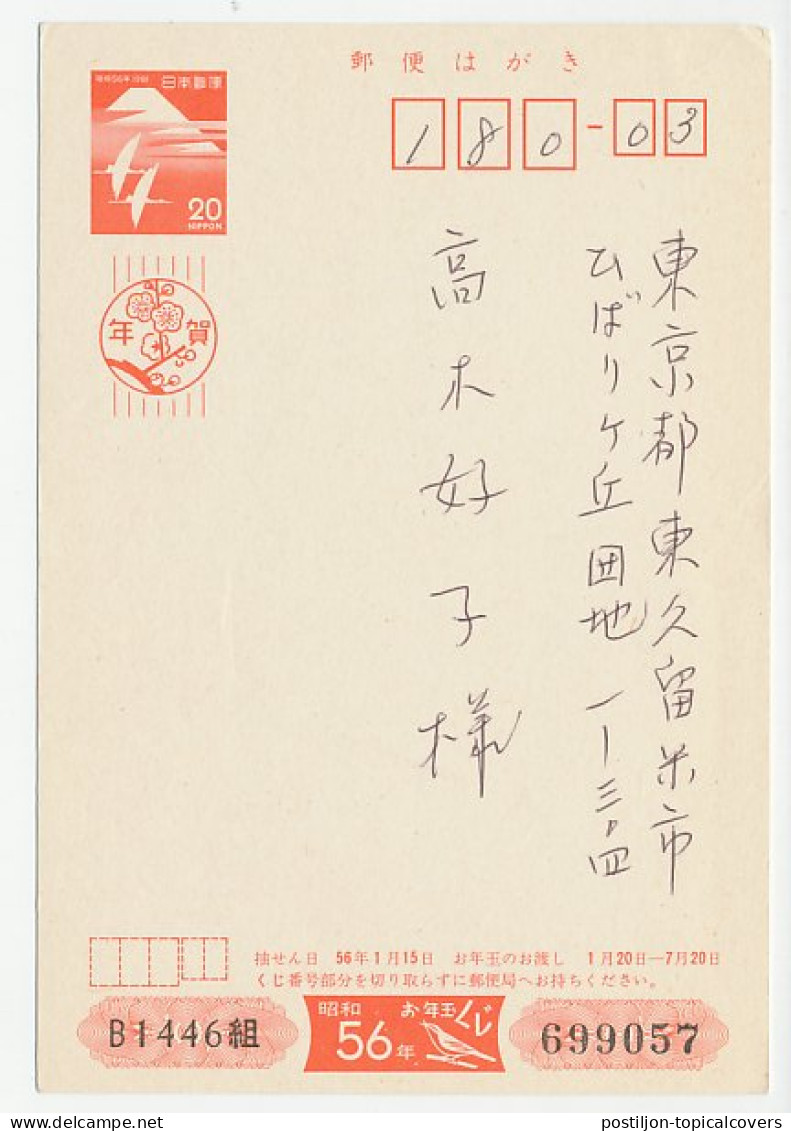 郵便はがき
昭和56年 1981 日本郵便
20
NIPPON
180-03
年賀
東京都東久留米市
ひばりケ丘団地 一ー三〇四
高木好子様
抽せん日 56年1月15日 お年玉のお渡し 1月20日―7月20日
くじ番号部分を切り取らずに郵便局へお持ちください。
B1446組
昭和56年 お年玉くじ
699057
postiljon-topicalcovers